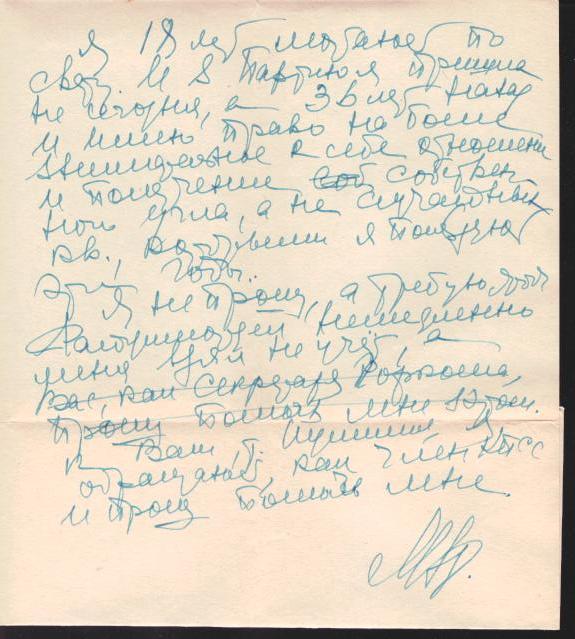 Я 18 лет мотаюсь по
свету. И в Партию я пришла
не сегодня, а 36 лет назад
и имею право на более
внимательное к себе отношение
и получение соб собствен
ного угла, а не случайных
кв., которыми я пользуюсь
эти годы.
Я не прошу, а требую, чтоб
немедленно
меня взяли на учёт, а
Вас, как секретаря Горкома,
прошу помочь мне в этом.
К Вам, т. я
обращаюсь, как член КПСС
и прошу помочь мне.